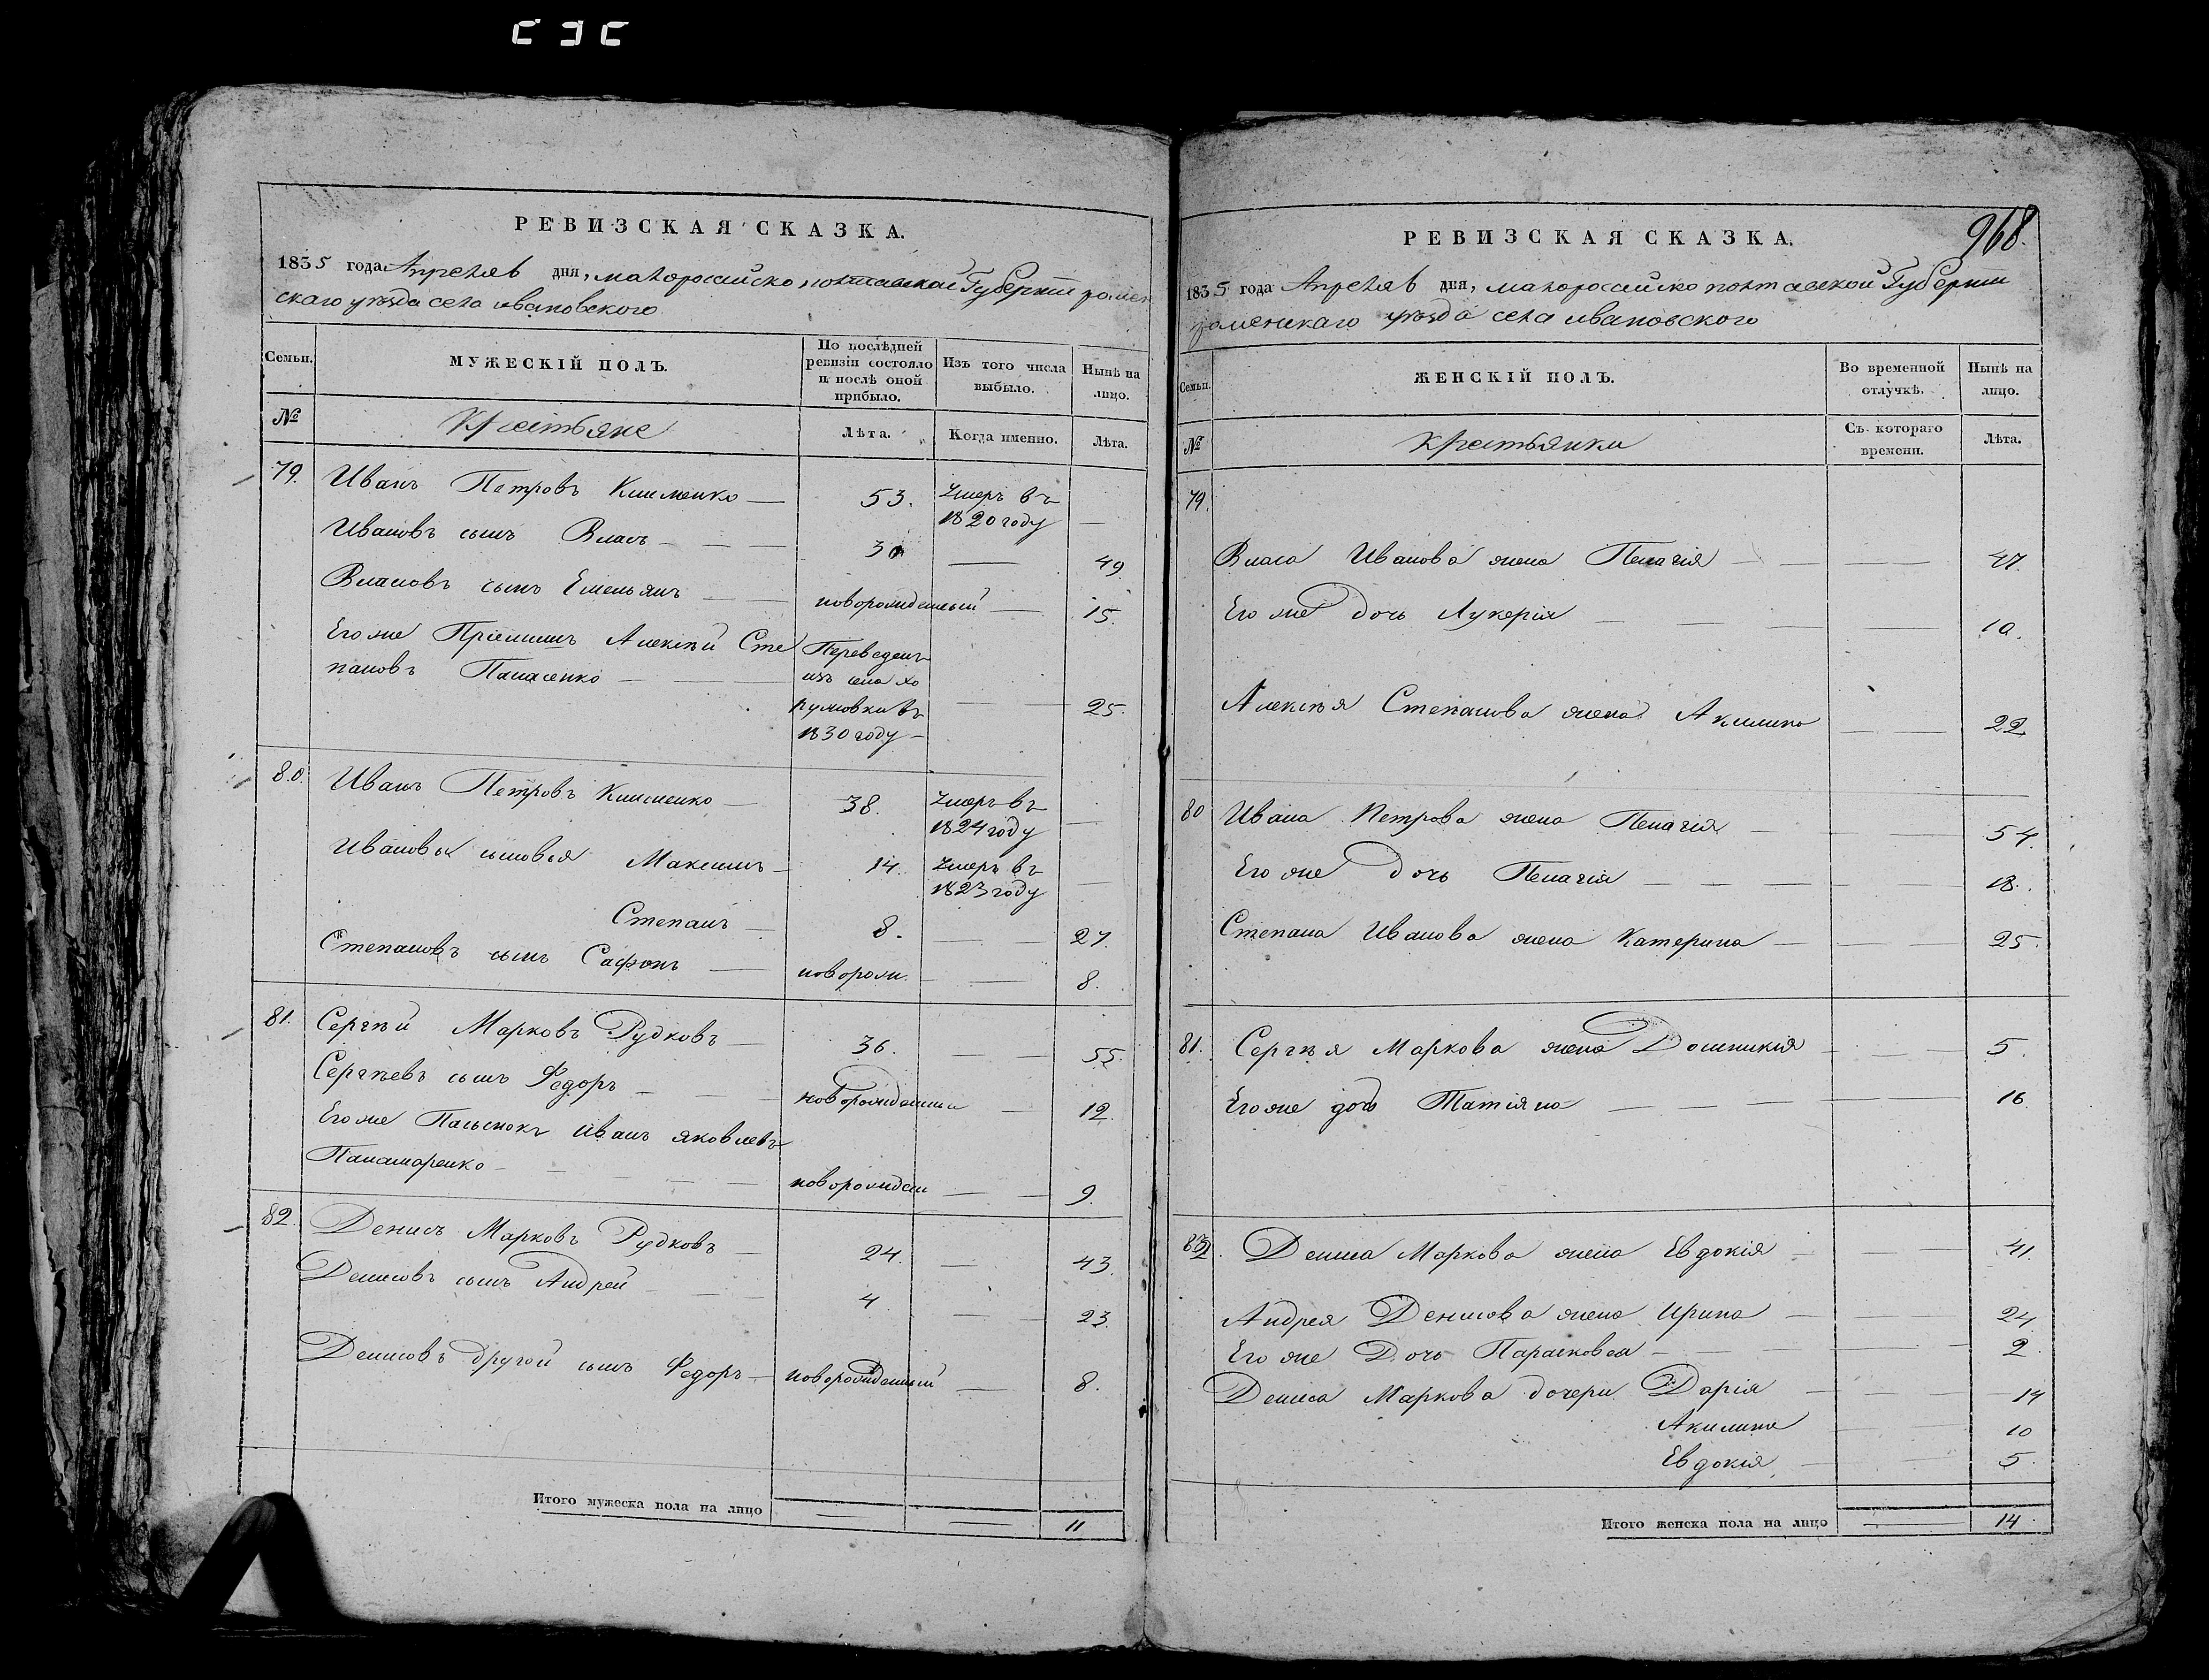 РЕВИЗСКАЯ СКАЗКА.
1835 года Апреля в дня, малороссийско полтавской Губернии ромен
скаго уѣзда села ивановского
Семьи. МУЖЕСКІЙ ПОЛЪ. По послѣдней ревизіи состояло и послѣ оной прибыло. Изъ того числа выбыло. Нынѣ на лицо.
№ Крестьяне Лѣта. Когда именно. Лѣта.
79. Иванъ Петровъ Клименко — 53. Умеръ въ 1820 году —
Ивановъ сынъ Власъ — 30 — 49.
Власовъ сынъ Емельянъ — новорожденный — 15.
Его же Пріемышъ Алексѣй Сте
пановъ Панасенко — Переведенъ
изъ села хо
ружовки въ — 25.
1830 году —
80. Иванъ Петровъ Клименко — 38. Умеръ въ 1824 году —
Ивановы сыновья Максимъ — 14. Умеръ въ 1823 году —
Степанъ — 8. — 27.
Степановъ сынъ Сафонъ — новорожд. — 8.
81. Сергѣй Марковъ Рудковъ — 36. — 55.
Сергѣевъ сынъ Федоръ — новорожденный — 12.
Его же Пасынокъ иванъ яковлевъ
Панамаренко — новорожден — 9.
82. Денисъ Марковъ Рудковъ — 24. — 43.
Денисовъ сынъ Андрей — 4. — 23.
Денисовъ другой сынъ Федоръ — новорожденный — 8.
Итого мужеска пола на лицо — — 11
968.
РЕВИЗСКАЯ СКАЗКА.
1835 года Апреля в дня, малороссийско полтавской Губернии
роменскаго уѣзда села ивановского
Семьи. ЖЕНСКІЙ ПОЛЪ. Во временной отлучкѣ. Нынѣ на лицо.
№ крестьянки Съ котораго времени. Лѣта.
79.
Власа Иванова жена Пелагія — 47.
Его же дочь Лукерія — 10.
Алексѣя Степанова жена Акилина — 22.
80 Ивана Петрова жена Пелагія — 54.
Его же дочь Пелагія — 18.
Степана Иванова жена Катерина — 25.
81. Сергѣя Маркова жена Домникія — 5.
Его же дочь Татіяна — 16.
82. Дениса Маркова жена Евдокія — 41.
Андрея Денисова жена Ирина — 24
Его же Дочь Парасковея — 2.
Дениса Маркова дочери Дарія — 14
Акилина — 10
Евдокія — 5.
Итого женска пола на лицо — 14.